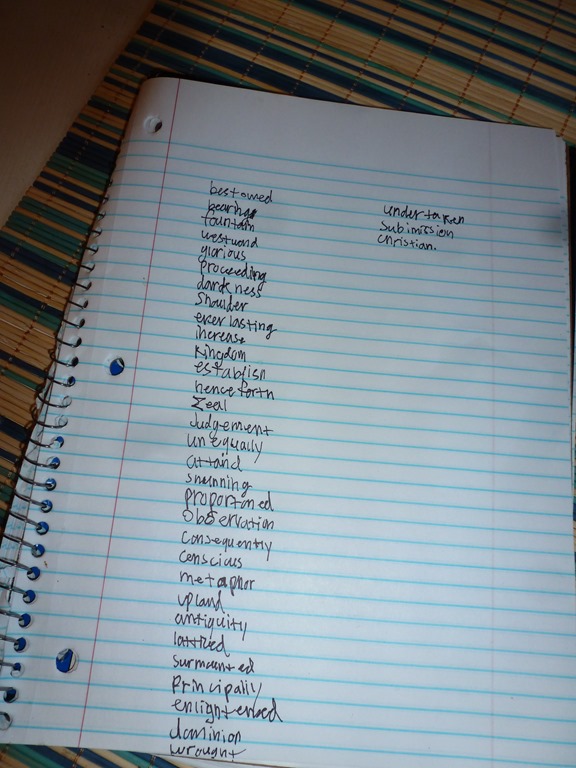 bestowed
bearings
fountain
westward
glorious
proceeding
darkness
shoulder
everlasting
increase
Kingdom
establish
henceforth
Zeal
Judgement
unequally
attaind
shunning
proportoned
observation
consequently
conscious
metaphor
upland
antiquity
latticed
surmounted
Principally
enlightened
dominion
wrought
undertaken
Subimission
Christian.